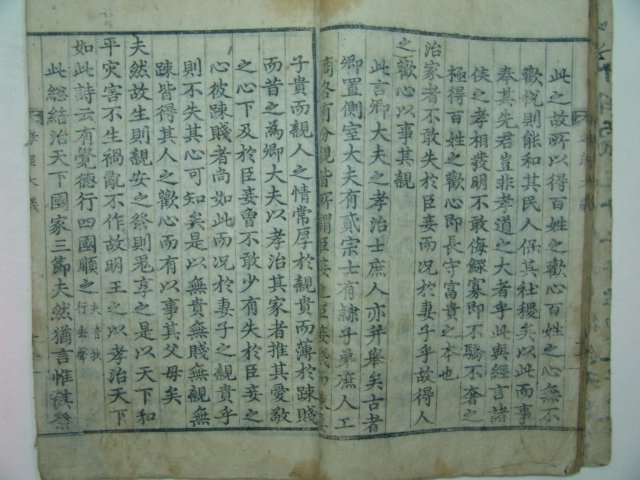 此之故所以得百姓之歡心百姓之心無不
歡悅則能和其民人保其社稷矣以此而事
奉其先君豈非孝道之大者乎此與經言諸
侯之孝相發明不敢侮鰥寡即不驕不奢之
極得百姓之歡心即長守富貴之本也
治家者不敢失於臣妾而況於妻子乎故得人
之歡心以事其親
此言卿大夫之孝治士庶人亦并舉矣古者
卿置側室大夫有貳宗士有隸子弟庶人工
商各有分親皆所謂臣妾也臣妾
子貴而親人之情常厚於親貴而薄於踈賤
而昔之為卿大夫以孝治其家者推其愛敬
之心下及於臣妾曾不敢少有失於臣妾之
心彼踈賤者尚如此而况於妻子之親貴乎
則不失其心可知矣是以無貴無賤無親無
踈皆得其人之歡心而有以事其父母矣
夫然故生則親安之祭則鬼享之是以天下和
平灾害不生禍亂不作故明王之以孝治天下
如此詩云有覺德行四國順之夫音扶行去聲
此緫結治天下國家三節夫然猶言惟其
孝經大義